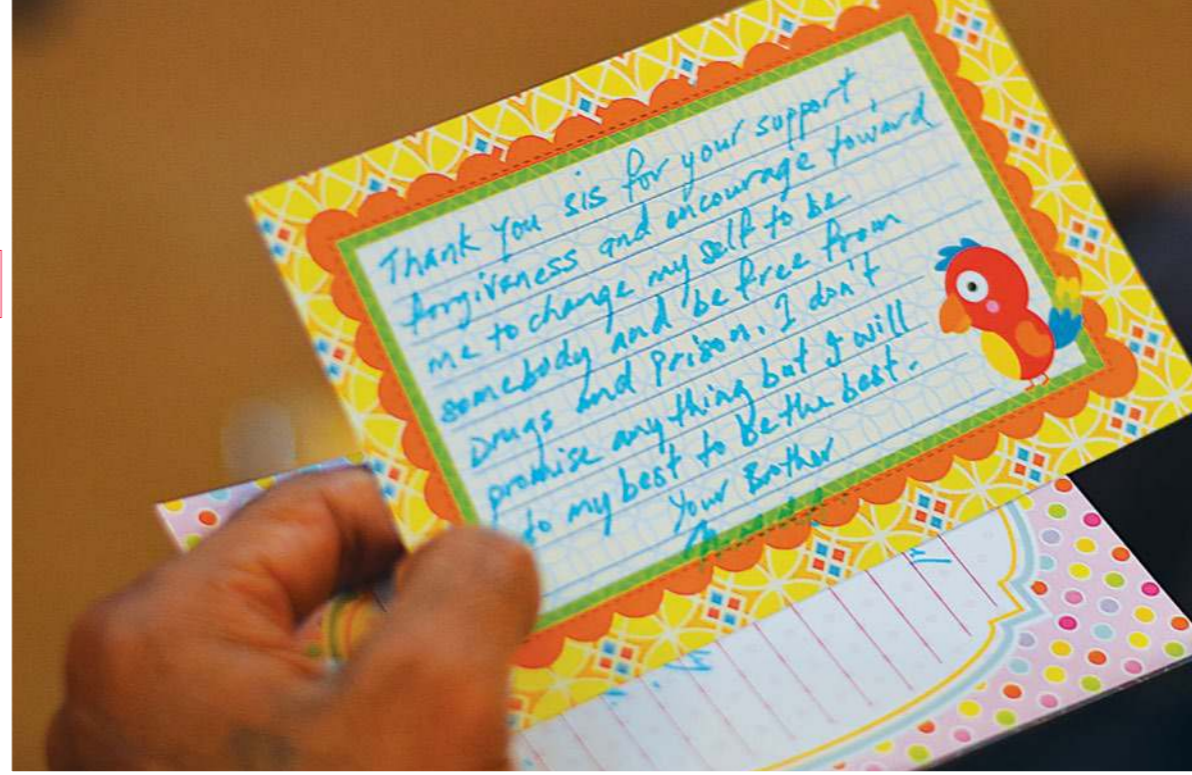 Thank you sis for your support,
forgiveness and encourage toward
me to change my self to be
somebody and be free from
Drugs and Prison. I don't
promise anything but I will
do my best to be the best.
Your Brother